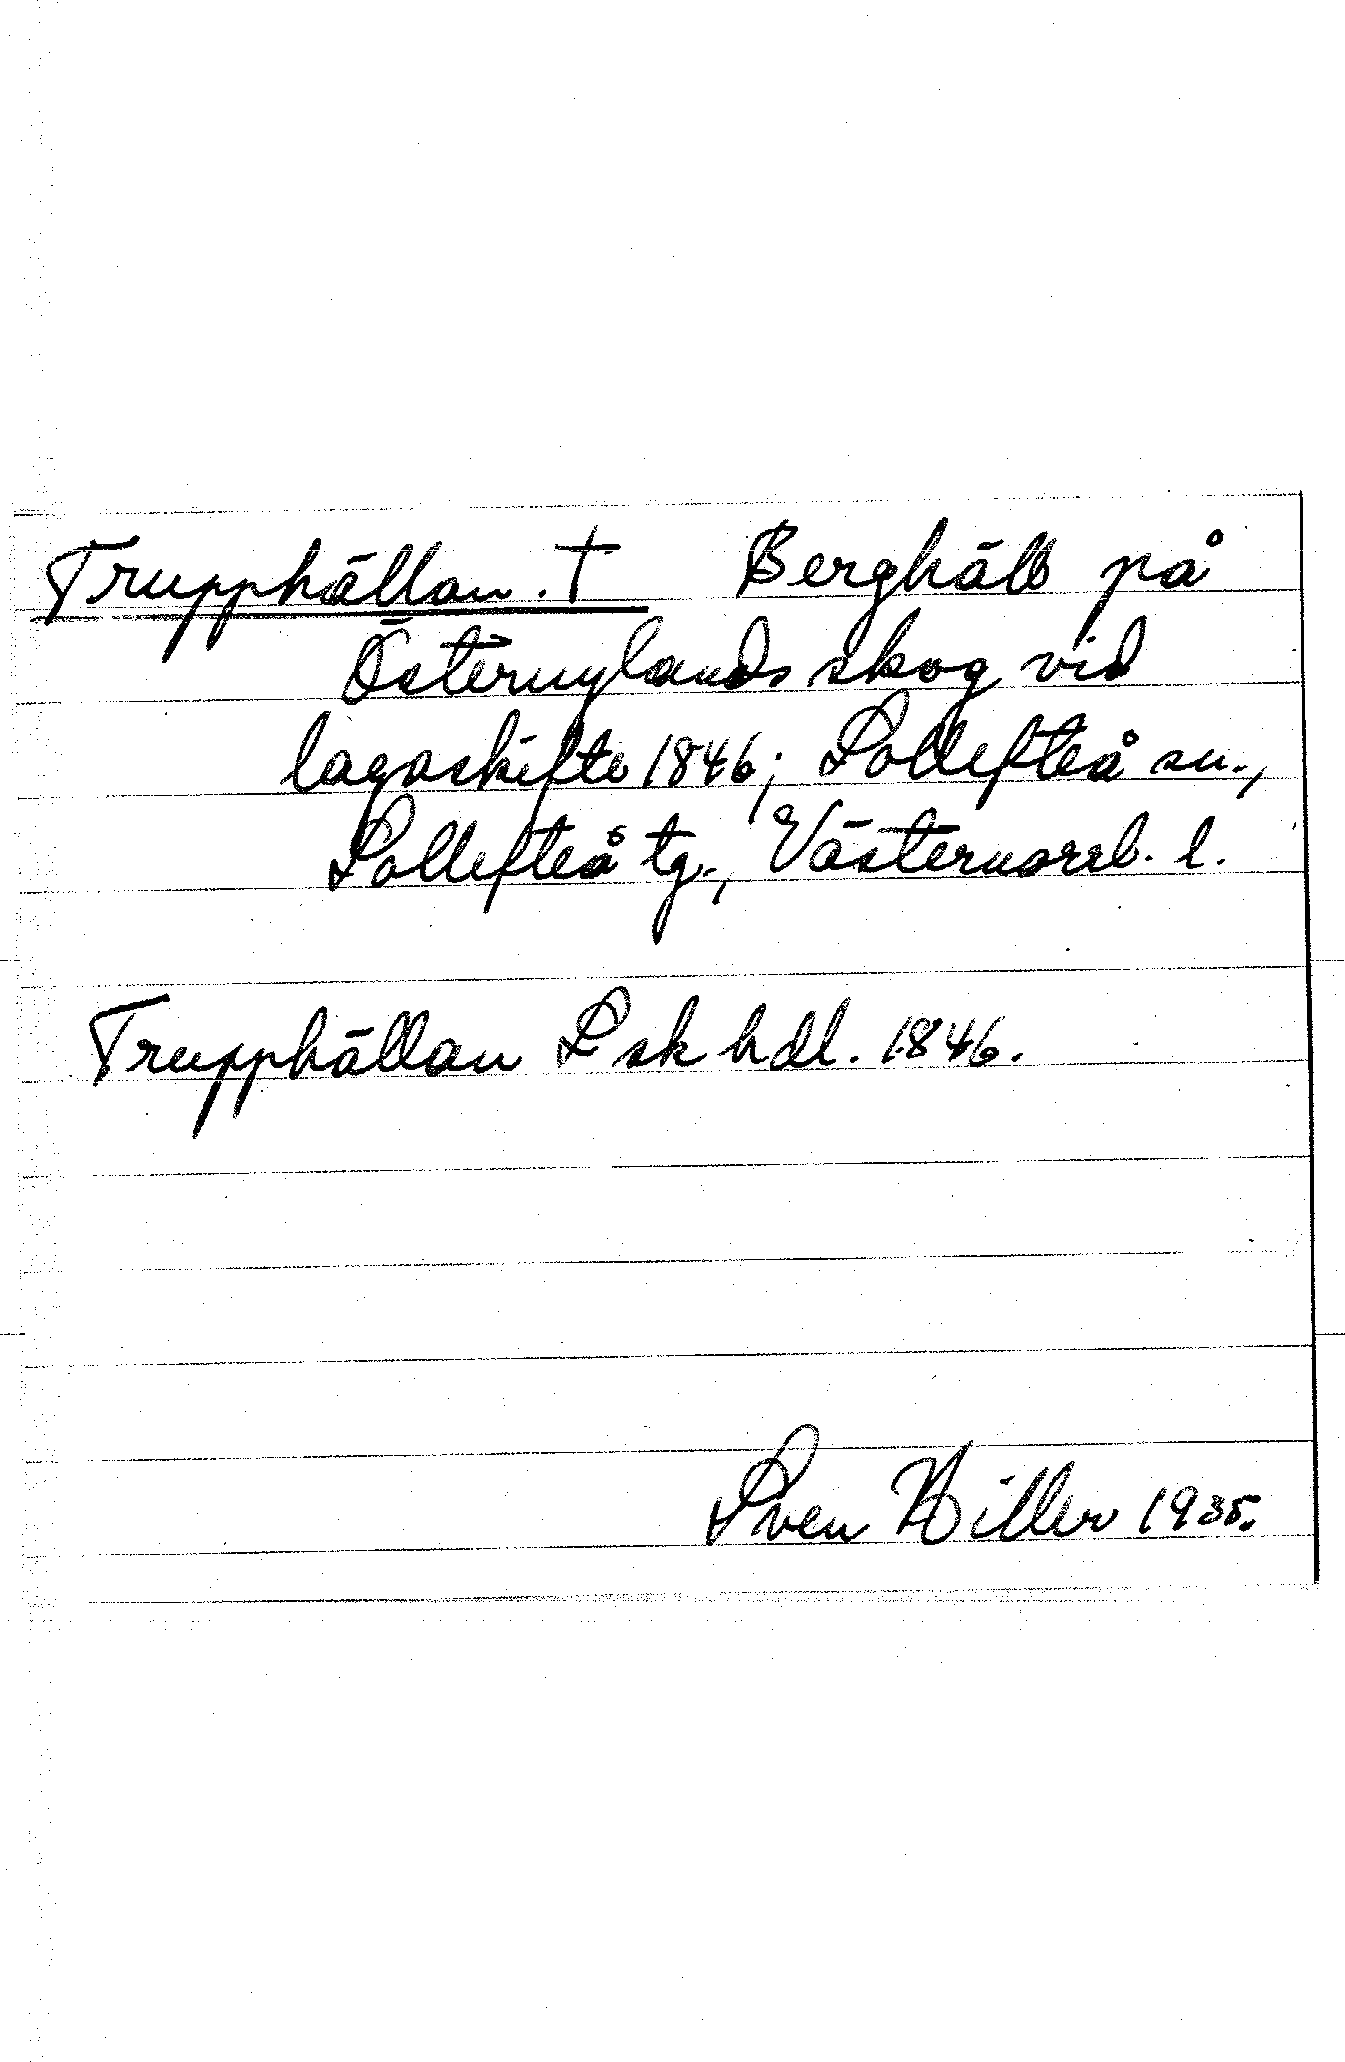 Trupphällan. † Berghäll på
Östernylands skog vid
lagaskifte 1846; Sollefteå sn.,
Sollefteå tg., Västernorrl. l.
Trupphällan Lsk hdl. 1846.
Sven Hiller 1935.